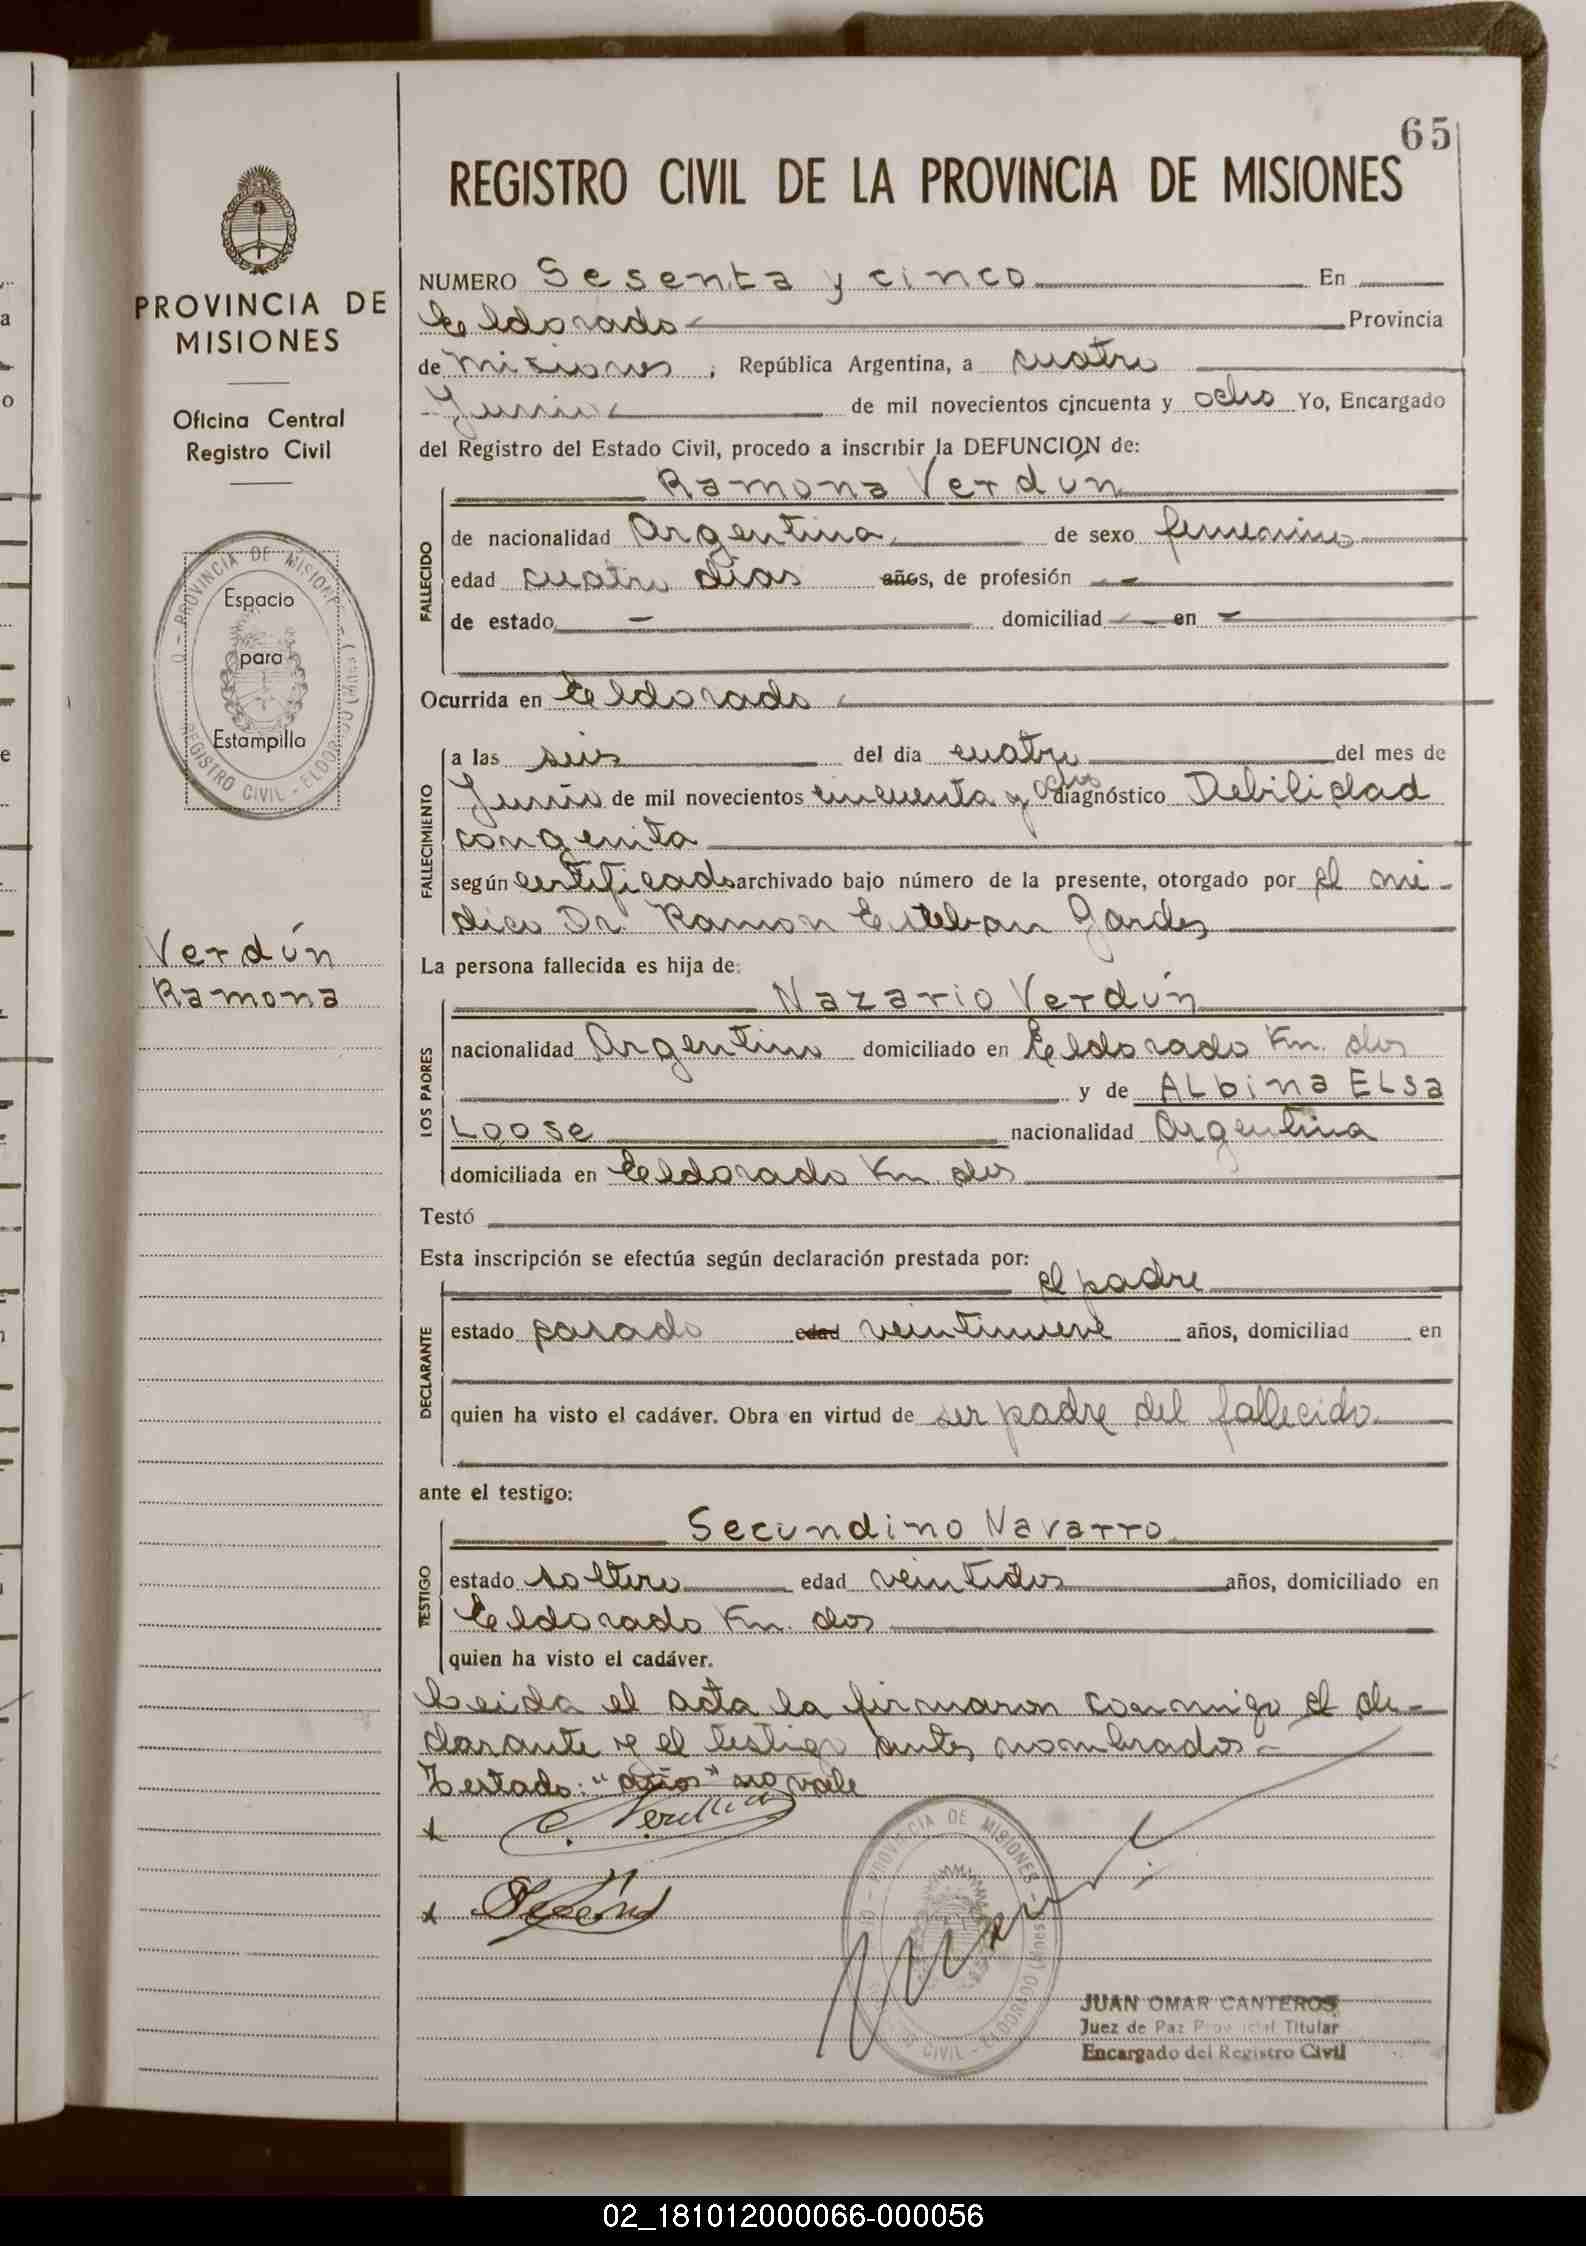 65
REGISTRO CIVIL DE LA PROVINCIA DE MISIONES
PROVINCIA DE
MISIONES
Oficina Central
Registro Civil
PROVINCIA DE MISIONES
Espacio
para
Estampilla
REGISTRO CIVIL - ELDORADO
Verdún
Ramona
NUMERO Sesenta y cinco En
Eldorado Provincia
de Misiones, República Argentina, a cuatro
Junio de mil novecientos cincuenta y ocho Yo, Encargado
del Registro del Estado Civil, procedo a inscribir la DEFUNCION de:
Ramona Verdún
FALLECIDO
de nacionalidad Argentina de sexo femenino
edad cuatro días años, de profesión -
de estado - domiciliad - en -
Ocurrida en Eldorado
FALLECIMIENTO
a las seis del dia cuatro del mes de
Junio de mil novecientos cincuenta y ocho diagnóstico Debilidad
congenita
según certificado archivado bajo número de la presente, otorgado por el mé-
dico Dr. Ramon Esteban Gardes
La persona fallecida es hija de:
LOS PADRES
Nazario Verdún
nacionalidad Argentino domiciliado en Eldorado Km. dos
y de Albina Elsa
Loose nacionalidad Argentina
domiciliada en Eldorado Km. dos
Testó
Esta inscripción se efectúa según declaración prestada por:
el padre
DECLARANTE
estado casado edad veintinueve años, domiciliad en
quien ha visto el cadáver. Obra en virtud de ser padre del fallecido
ante el testigo:
TESTIGO
Secundino Navarro
estado soltero edad veintidos años, domiciliado en
Eldorado Km. dos
quien ha visto el cadáver.
Leida el acta la firmaron conmigo el de-
clarante y el testigo antes nombrados -
Testado: "años" no vale
PROVINCIA DE MISIONES
CIVIL - ELDORADO
JUAN OMAR CANTEROS
Juez de Paz Provincial Titular
Encargado del Registro Civil
02_181012000066-000056